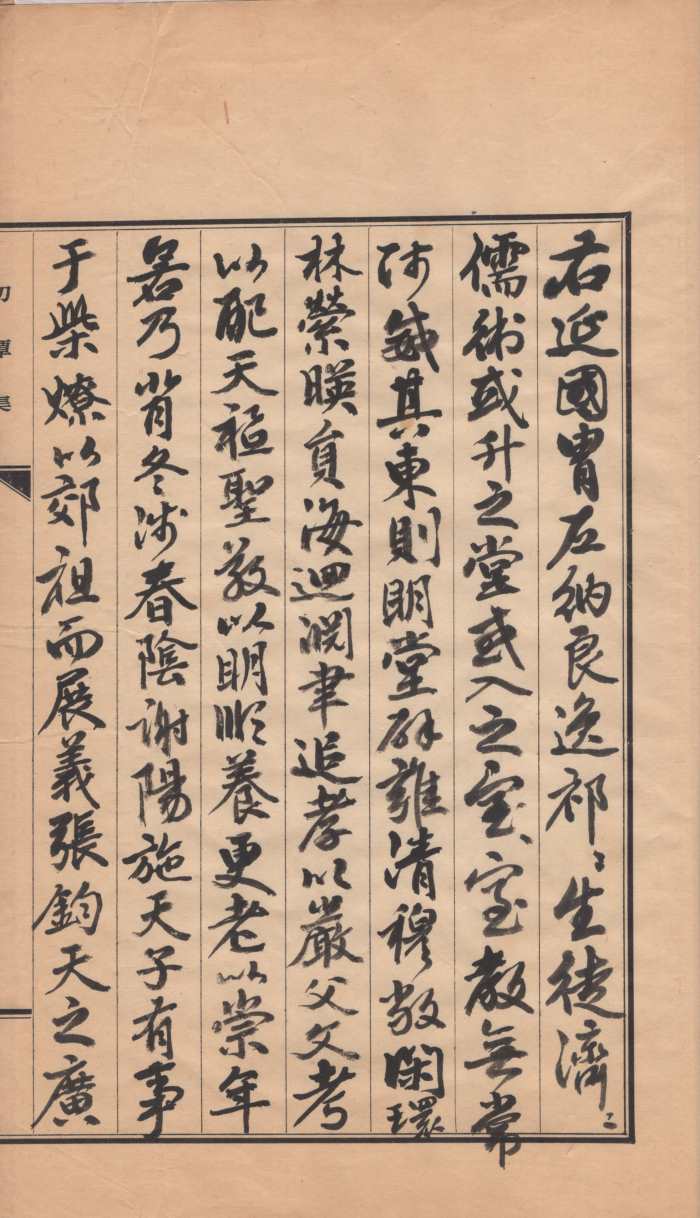 右延國胄左納良逸祁〻生徒濟〻
儒術或升之堂或入之室室教無常
師其東則明堂辟雍清穆敞閑環
林縈暎員海迴淵聿追孝以嚴父文考
以配天祗聖敬以明順養更老以崇年
若乃背冬涉春陰謝陽施天子有事
于柴燎以郊祖而展義張鈞天之廣